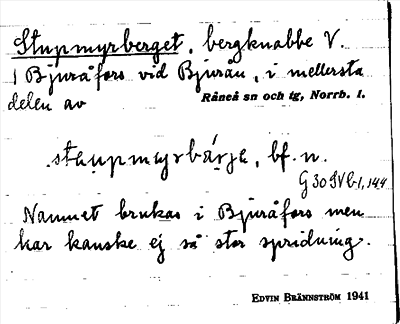 Stupmyrberget, bergknabbe V.
i Bjuråfors vid Bjurån, i mellersta
delen av Råneå sn och tg, Norrb. l.
staupmyrbárje, bf. n.
G 30 IV b 1, 144
Namnet brukas i Bjuråfors men
har kanske ej så stor spridning.
EDVIN BRÄNNSTRÖM 1941